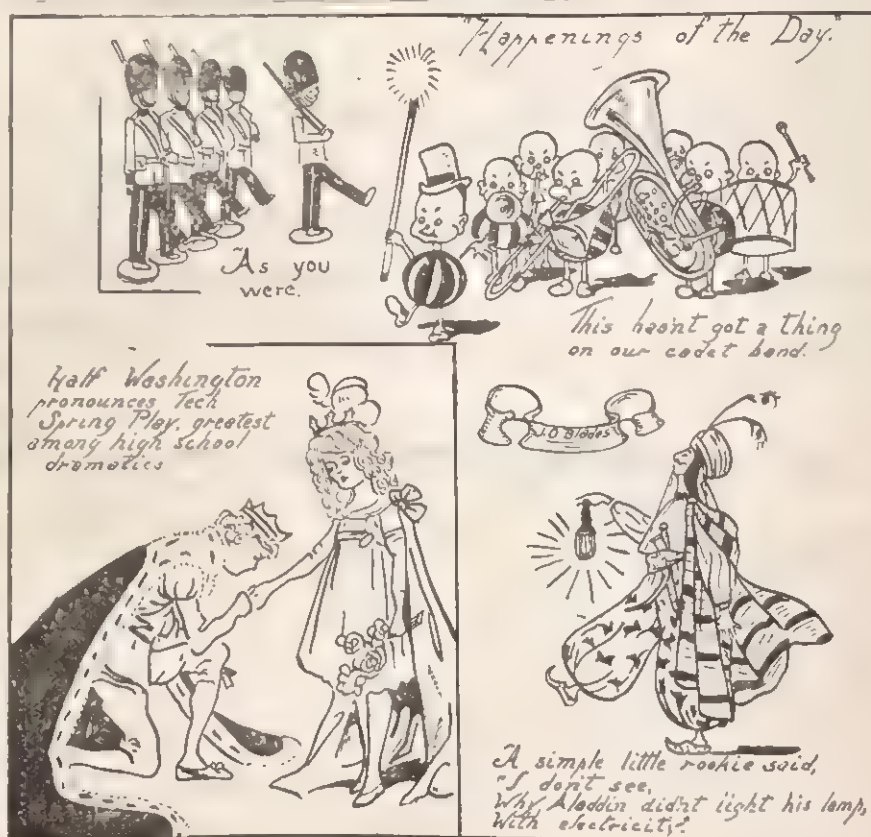 "Happenings of the Day."
As you
were.
This hasn't got a thing
on our cadet band.
Half Washington
pronounces Tech
Spring Play, greatest
among high school
dramatics
J.O Blades
A simple little rookie said,
"I don't see,
Why Aladdin didn't light his lamp,
With electricity,"